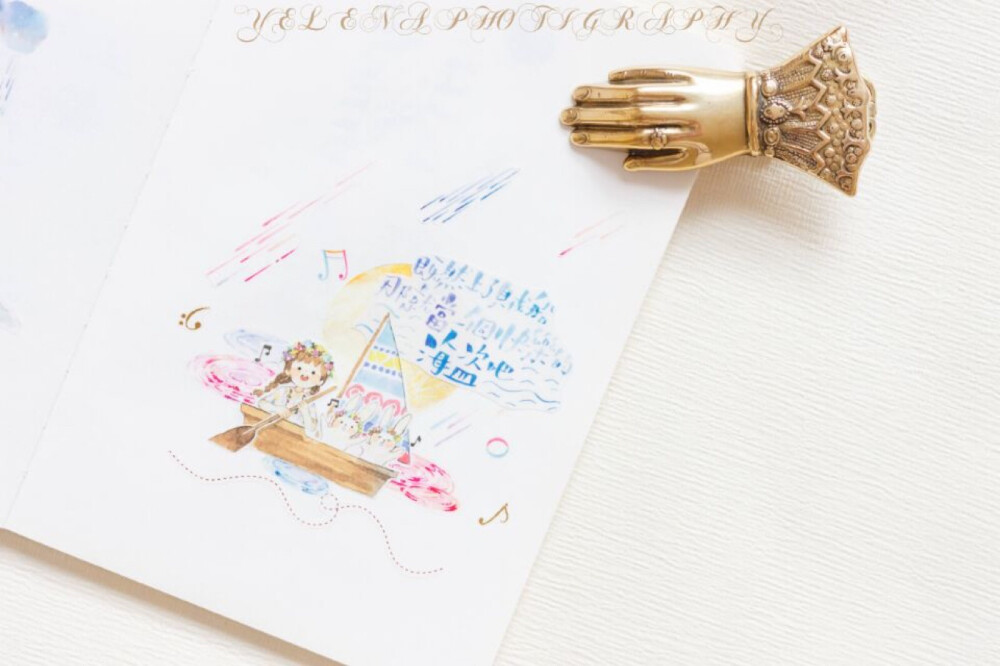 YELENA PHOTIGRAPHY
既然上了賊船
那就當一個快樂的
海盗吧